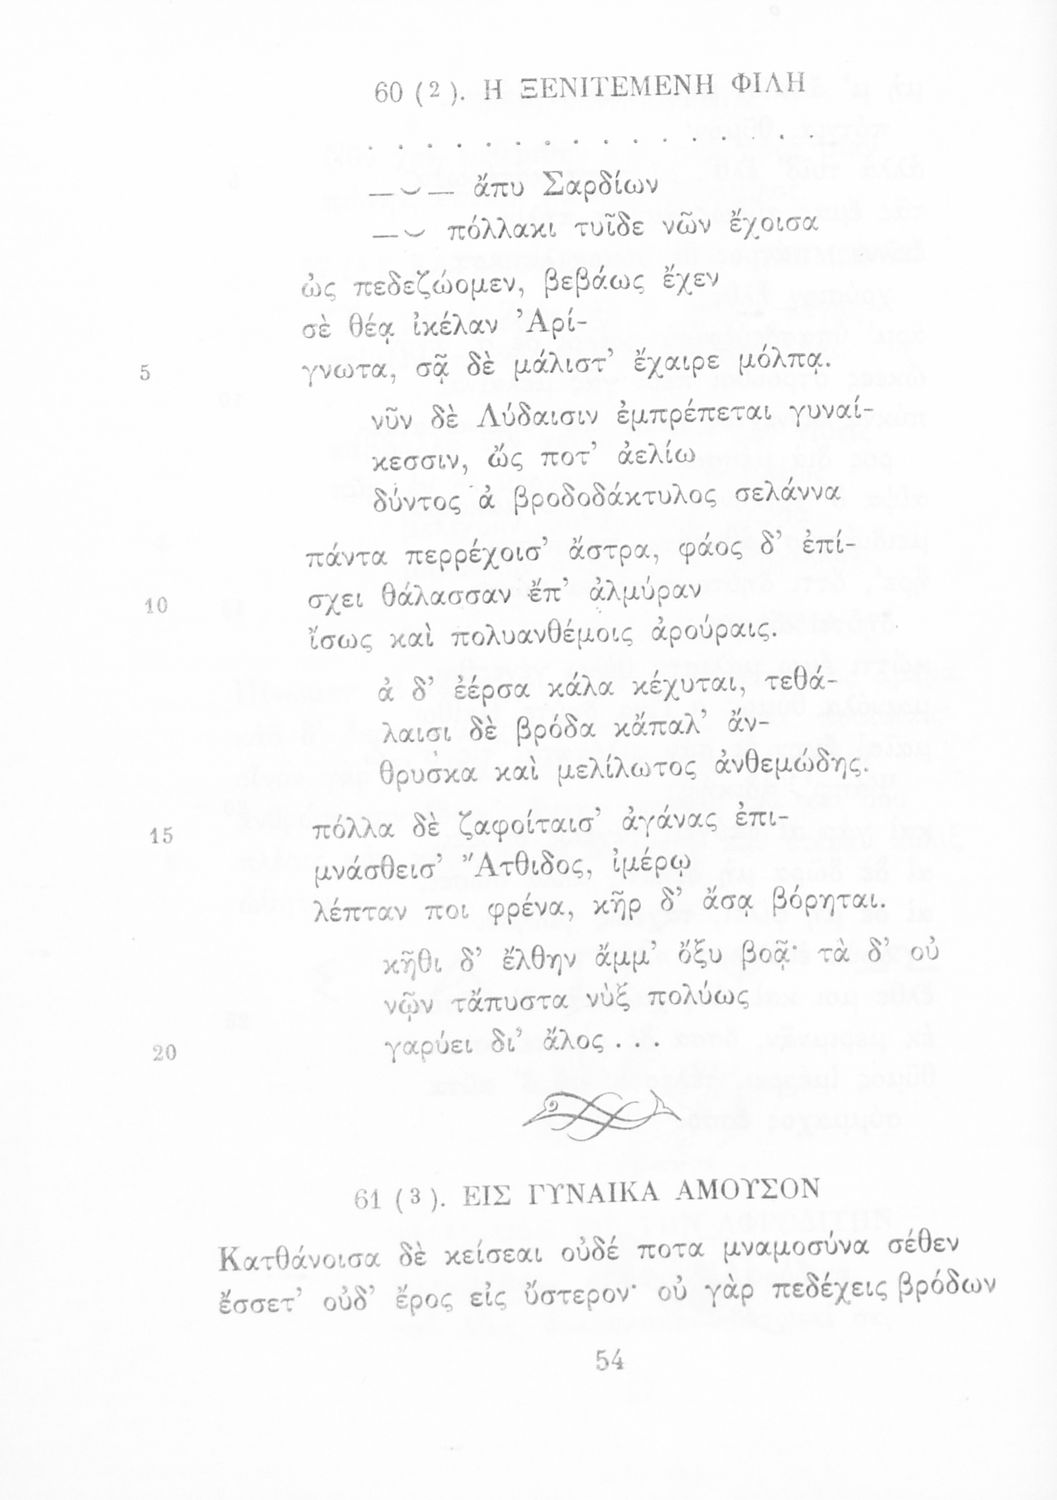 60 (2). Η ΞΕΝΙΤΕΜΕΝΗ ΦΙΛΗ
. . . . . . . . . . . . . . .
—⏑— ἄπυ Σαρδίων
—⏑ πόλλακι τυῖδε νῶν ἔχοισα
ὠς πεδεζώομεν, βεβάως ἔχεν
σὲ θέᾳ ἰκέλαν Ἀρί-
5 γνωτα, σᾷ δὲ μάλιστ’ ἔχαιρε μόλπᾳ.
νῦν δὲ Λύδαισιν ἐμπρέπεται γυναί-
κεσσιν, ὤς ποτ’ ἀελίω
δύντος ἀ βροδοδάκτυλος σελάννα
πάντα περρέχοισ’ ἄστρα, φάος δ’ ἐπί-
10 σχει θάλασσαν ἔπ’ ἀλμύραν
ἴσως καὶ πολυανθέμοις ἀρούραις.
ἀ δ’ ἐέρσα κάλα κέχυται, τεθά-
λαισι δὲ βρόδα κἄπαλ’ ἄν-
θρυσκα καὶ μελίλωτος ἀνθεμώδης.
15 πόλλα δὲ ζαφοίταισ’ ἀγάνας ἐπι-
μνάσθεισ’ Ἄτθιδος, ἰμέρῳ
λέπταν ποι φρένα, κῆρ δ’ ἄσᾳ βόρηται.
κῆθι δ’ ἔλθην ἄμμ’ ὄξυ βοᾷ· τὰ δ’ οὐ
νῷν τἄπυστα νὺξ πολύως
20 γαρύει δι’ ἄλος . . .
61 (3). ΕΙΣ ΓΥΝΑΙΚΑ ΑΜΟΥΣΟΝ
Κατθάνοισα δὲ κείσεαι οὐδέ ποτα μναμοσύνα σέθεν
ἔσσετ’ οὐδ’ ἔρος εἰς ὔστερον· οὐ γὰρ πεδέχεις βρόδων
54